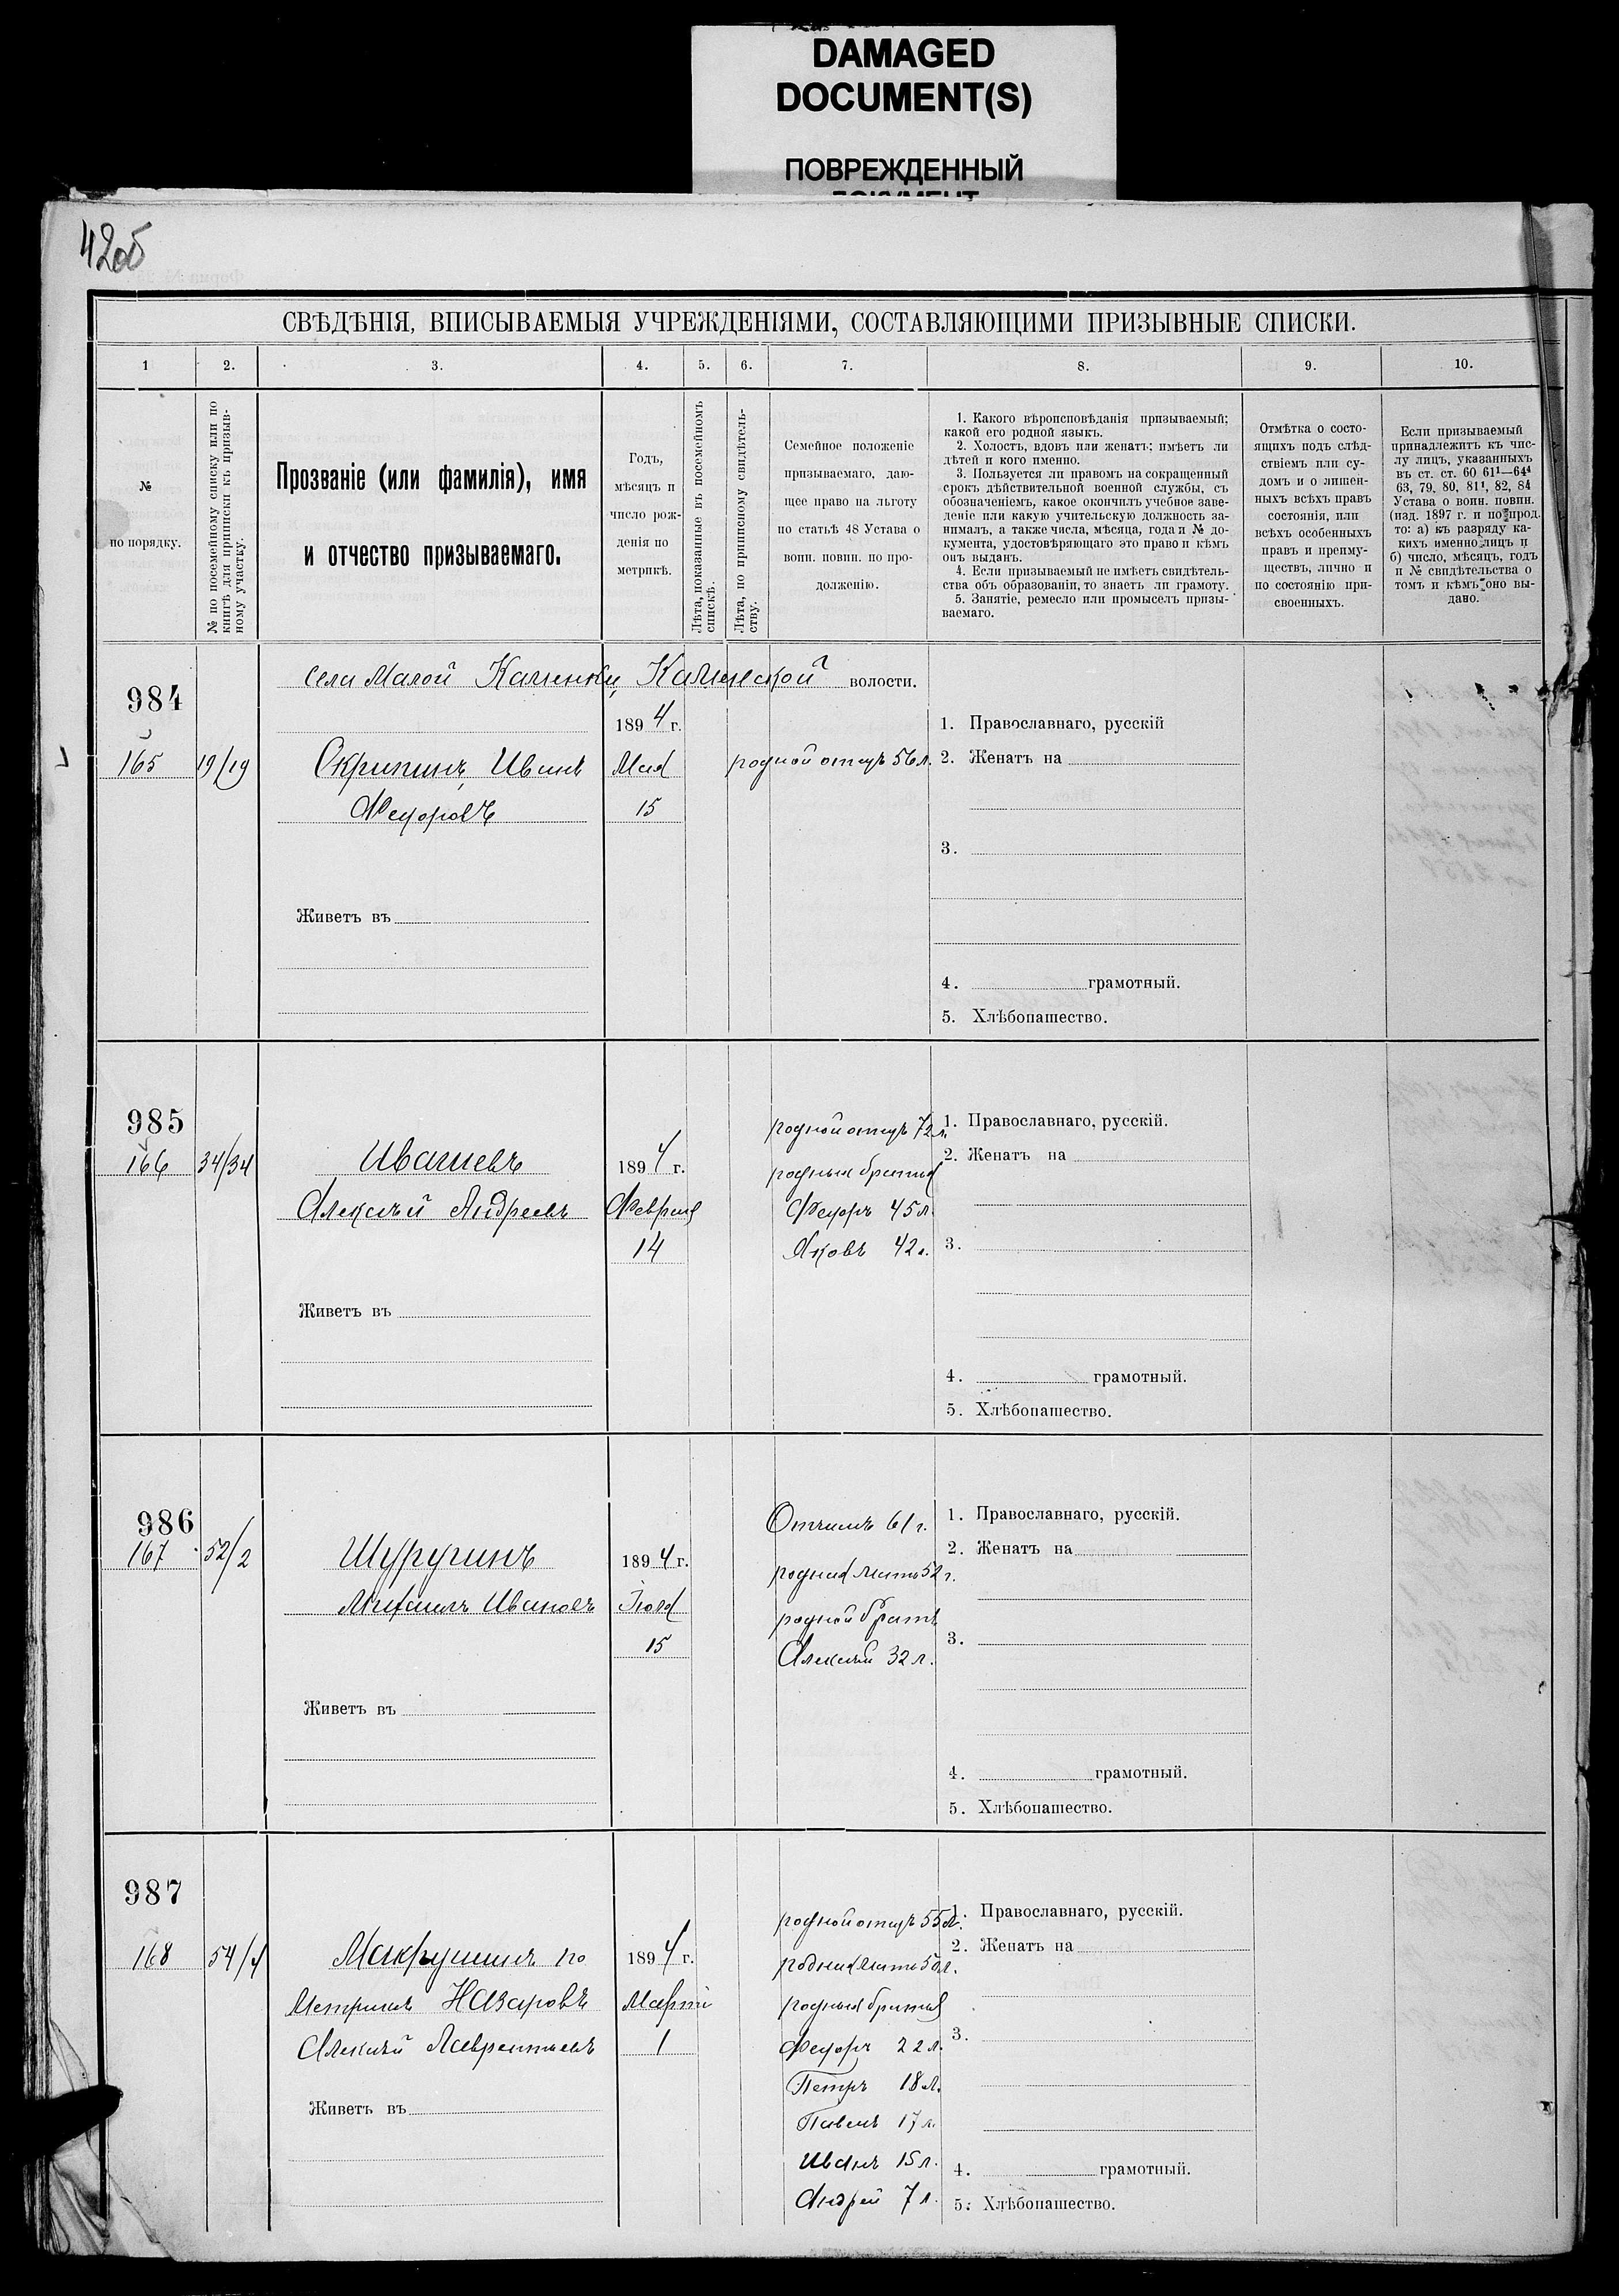 DAMAGED
DOCUMENT(S)
ПОВРЕЖДЕННЫЙ
ДОКУМЕНТ
42об
СВѢДѢНІЯ, ВПИСЫВАЕМЫЯ УЧРЕЖДЕНІЯМИ, СОСТАВЛЯЮЩИМИ ПРИЗЫВНЫЕ СПИСКИ.
1 2. 3. 4. 5. 6. 7. 8. 9. 10.
№
по порядку.
№ по посемейному списку или по
книгѣ для приписки къ призыв-
ному участку.
Прозваніе (или фамилія), имя
и отчество призываемаго.
Годъ,
мѣсяцъ и
число рож-
денія по
метрикѣ.
Лѣта, показанные въ посемейномъ
спискѣ.
Лѣта, по приписному свидѣтель-
ству.
Семейное положеніе
призываемаго, даю-
щее право на льготу
по статьѣ 48 Устава о
воин. повин. по про-
долженію.
1. Какого вѣроисповѣданія призываемый;
какой его родной языкъ.
2. Холостъ, вдовъ или женатъ; имѣетъ ли
дѣтей и кого именно.
3. Пользуется ли правомъ на сокращенный
срокъ дѣйствительной военной службы, съ
обозначеніемъ, какое окончилъ учебное заве-
деніе или какую учительскую должность за-
нималъ, а также числа, мѣсяца, года и № до-
кумента, удостовѣряющаго это право и кѣмъ
онъ выданъ.
4. Если призываемый не имѣетъ свидѣтель-
ства объ образованіи, то знаетъ ли грамоту.
5. Занятіе, ремесло или промыселъ призы-
ваемаго.
Отмѣтка о состо-
ящихъ подъ слѣд-
ствіемъ или су-
домъ и о лишен-
ныхъ всѣхъ правъ
состоянія, или
всѣхъ особенныхъ
правъ и преиму-
ществъ, лично и
по состоянію при-
своенныхъ.
Если призываемый
принадлежитъ къ чис-
лу лицъ, указанныхъ
въ ст. ст. 60 61¹—64⁴
63, 79, 80, 81¹, 82, 84
Устава о воин. повин.
(изд. 1897 г. и по прод.
то: а) къ разряду ка-
кихъ именно лицъ и
б) число, мѣсяцъ, годъ
и № свидѣтельства о
томъ и кѣмъ оно вы-
дано.
Села Малой Каменки, Каменской волости.
984
165 19/19
Скрипинъ, Иванъ
Федоровъ
1894 г.
Мая
15
родной отецъ 56 л.
1. Православнаго, русскій
2. Женатъ на
3.
4. грамотный.
5. Хлѣбопашество.
Живетъ въ
985
166 34/34
Ивашевъ
Алексѣй Андреевъ
1894 г.
Февраля
14
родной отецъ 72 л.
родныя братья
Федоръ 45 л.
Яковъ 42 л.
1. Православнаго, русскій.
2. Женатъ на
3.
4. грамотный.
5. Хлѣбопашество.
Живетъ въ
986
167 52/2
Шуругинъ
Михаилъ Ивановъ
1894 г.
Іюля
15
Отчимъ 61 г.
родная мать 52 г.
родной братъ
Алексѣй 32 л.
1. Православнаго, русскій.
2. Женатъ на
3.
4. грамотный.
5. Хлѣбопашество.
Живетъ въ
987
168 54/4
Макрушинъ по
Метрикѣ Назаровъ
Алексѣй Лаврентьевъ
1894 г.
Марта
1
родной отецъ 55 л.
родная мать 50 л.
родныя братья
Федоръ 22 л.
Петръ 18 л.
Павелъ 17 л.
Иванъ 15 л.
Андрей 7 л.
1. Православнаго, русскій.
2. Женатъ на
3.
4. грамотный.
5. Хлѣбопашество.
Живетъ въ